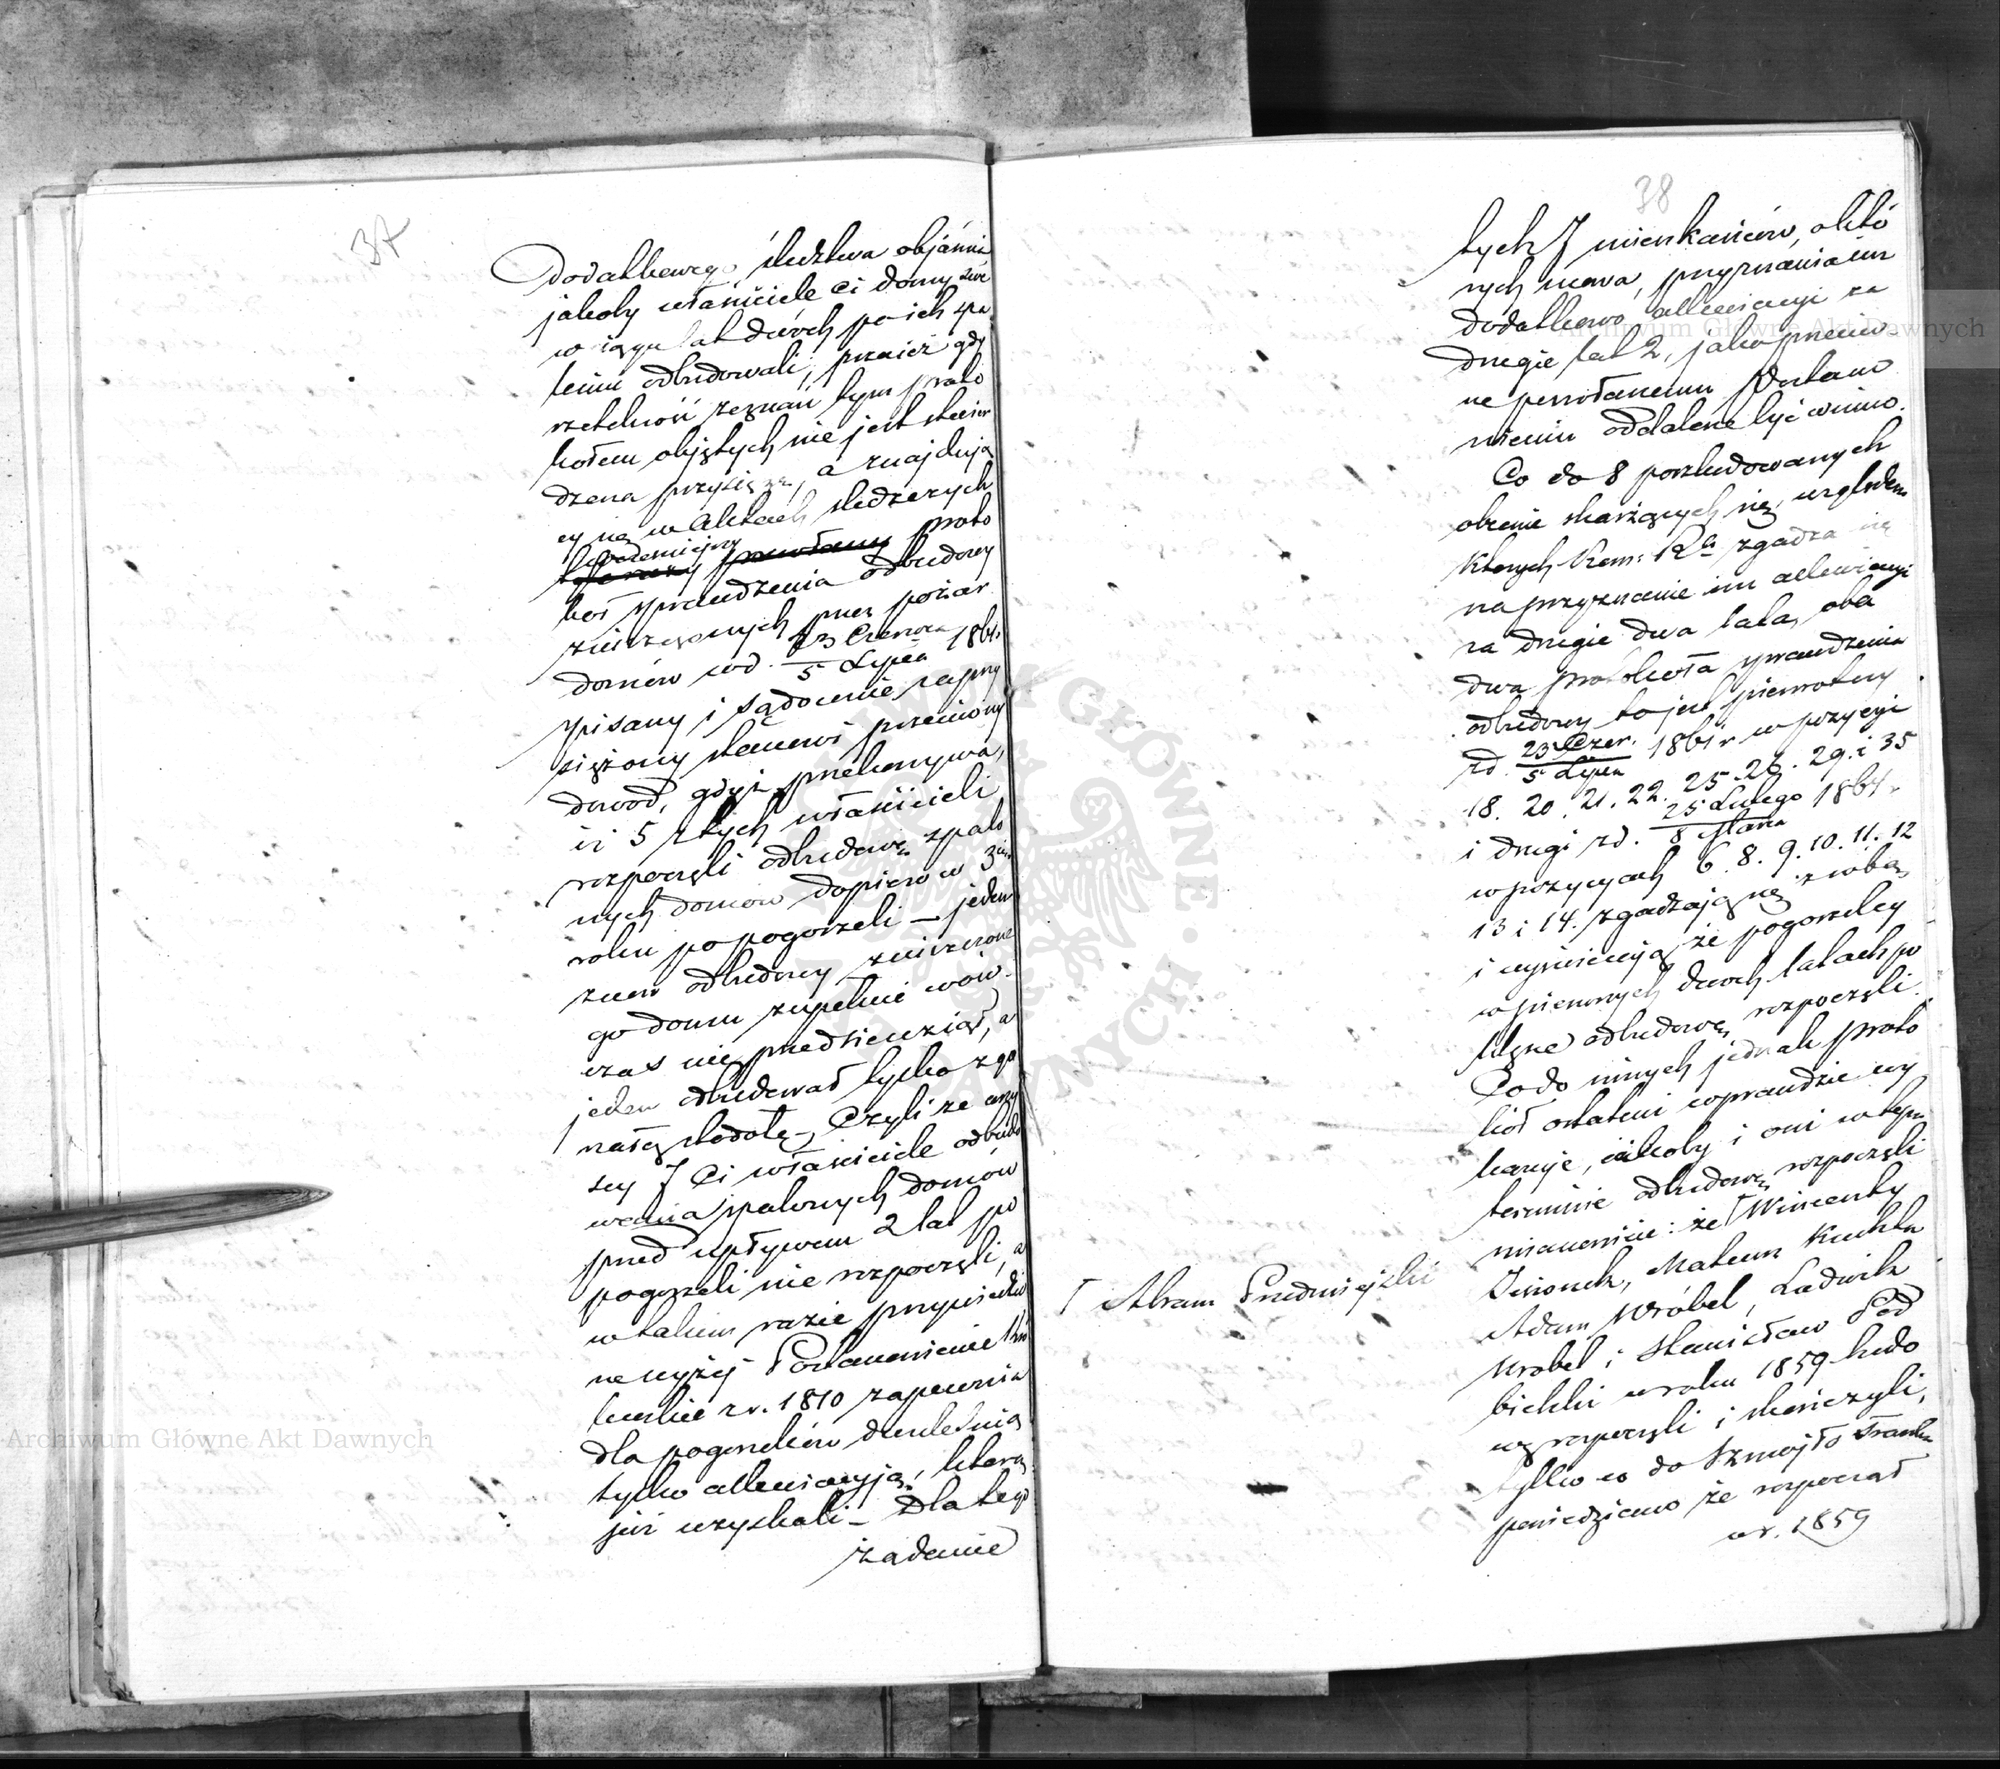 37
Dodatkowego śledztwa objaśnia
jakoby właściciele ci domy swe
w ciągu lat dwóch po ich spa
leniu odbudowali, przecież gdy
rzetelność zeznań tym proto
kołem objętych nie jest stwier
dzona przysięgą, a znajdują
cy się w aktach śledczych
proto
kół sprawdzenia odbudowy
zniszczonych przez pożar
domów w d. 23 Czerwca / 5 Lipca 1861 r.
spisany i sądownie zaprzy
siężony stanowi przeciwny
dowód, gdyż przekonywa,
iż 5 z tych właścicieli
rozpoczęli odbudowę spalo
nych domów dopiero w 3cim
roku po pogorzeli – jeden
zaś odbudowy zniszczone
go domu zupełnie wów
czas nie przedsięwziął, a
jeden odbudował tylko zgo
rzałą stodołę – Czyli że wszy
scy 7 Ci właściciele odbudo
wania spalonych domów
przed upływem 2 lat po
pogorzeli nie rozpoczęli, a
w takim razie przywiedzio
ne wyżej Postanowienie Kró
lewskie z r. 1810 zapewnia
dla pogorzelców dwuletnią
tylko allewiacyją, którą
już uzyskali – Dla tego
żądanie
38
tych 7 mieszkańców, o któ
rych mowa, przyznania im
dodatkowo allewiacyi za
drugie lat 2, jako przeciw
ne powołanemu Postano
wieniu oddalone być winno.
Co do 8 poszkodowanych
obecnie skarżących się, względem
których Kom: Rz. zgadza się
na przyznanie im allewiacyi
za drugie dwa lata, oba
dwa protokoła sprawdzenia
odbudowy to jest pierwotny
z d. 23 Czer. / 5 Lipca 1861 r w pozycyi
18. 20. 21. 22. 25. 26. 29. i 35
i drugi z d. 25 Lutego / 8 Marca 1864 r.
w pozycyach 6. 8. 9. 10. 11. 12
13 i 14. zgadzają się z sobą
i wyświecają że pogorzelcy
w pierwszych dwóch latach po
klęsce odbudowę rozpoczęli.
Co do innych jednak proto
kół ostatni wprawdzie wy
kazuje, jakoby i oni w tym
terminie odbudowę rozpoczęli
mianowicie: że Wincenty
Mateusz Kuchta
⌈ Abram Przedmiejski
Adam Wróbel, Ludwik
Wróbel i Stanisław Pod
bielski w roku 1859 budo
wę rozpoczęli i skończyli,
tylko co do
powiedziano że rozpoczął
w r. 1859